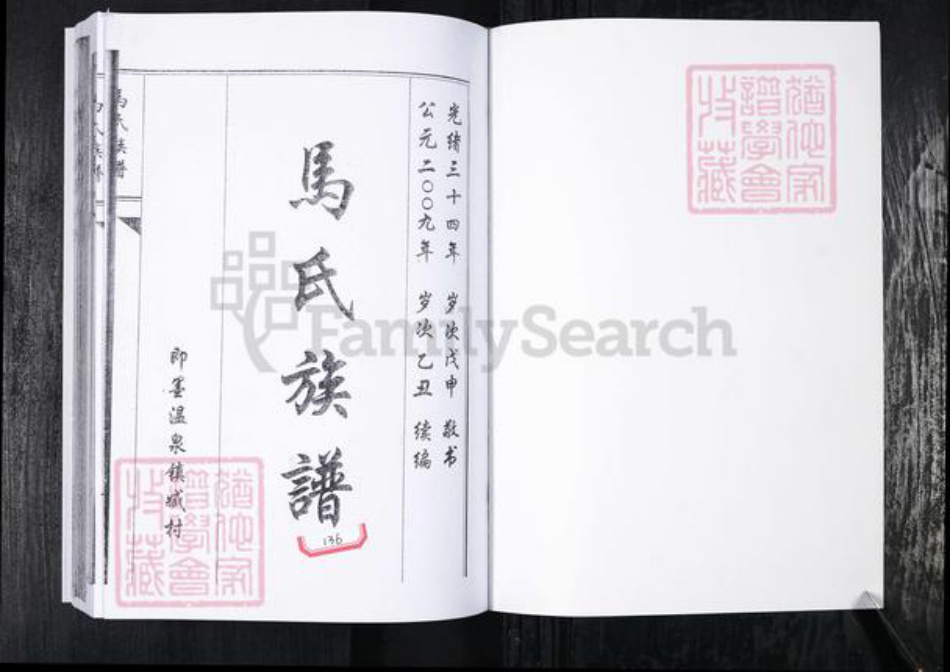 光绪三十四年 岁次戊申 敬书
公元二〇〇九年 岁次乙丑 续编
馬氏族譜
136
即墨温泉镇臧村
馬氏族譜
FamilySearch
猶他家
譜學會
收藏
猶他家
譜學會
收藏